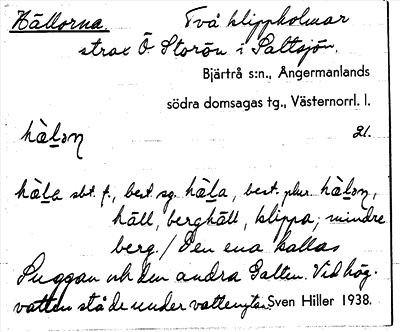 Hällorna. Två klippholmar
strax Ö Storön i Saltsjön.
Bjärtrå s:n., Ångermanlands
södra domsagas tg., Västernorrl. l.
hàlən 21.
hàla sbt. f., best. sg. hàla, best. plur. hàlən,
häll, berghäll, klippa; mindre
berg. / Den ena kallas
Suggan och den andra Galten. Vid hög-
vatten stå de under vattenytan. Sven Hiller 1938.